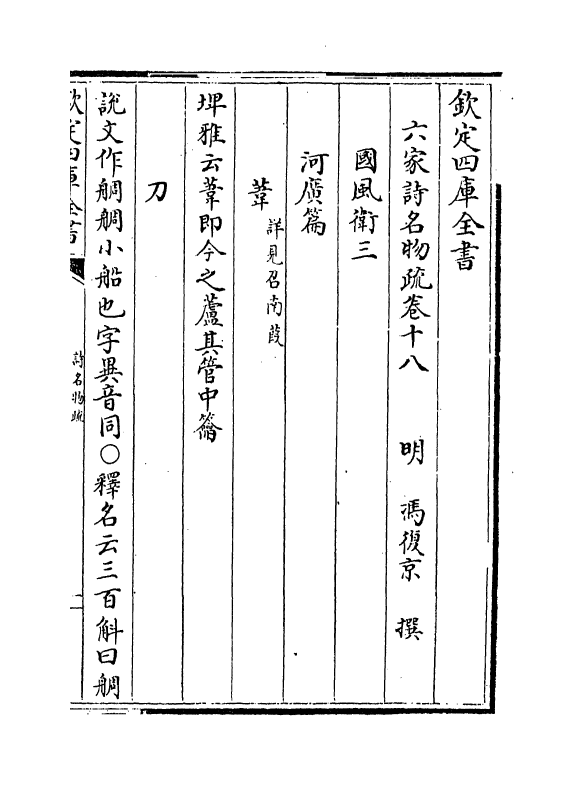 欽定四庫全書
六家詩名物疏卷十八　明　馮復京　撰
國風衛三
河廣篇
葦　詳見召南葭
埤雅云葦即今之蘆其管中籥
刀
說文作鯛鯛小船也字異音同○釋名云三百斛曰鯛
欽定四庫全書
詩名物疏
一